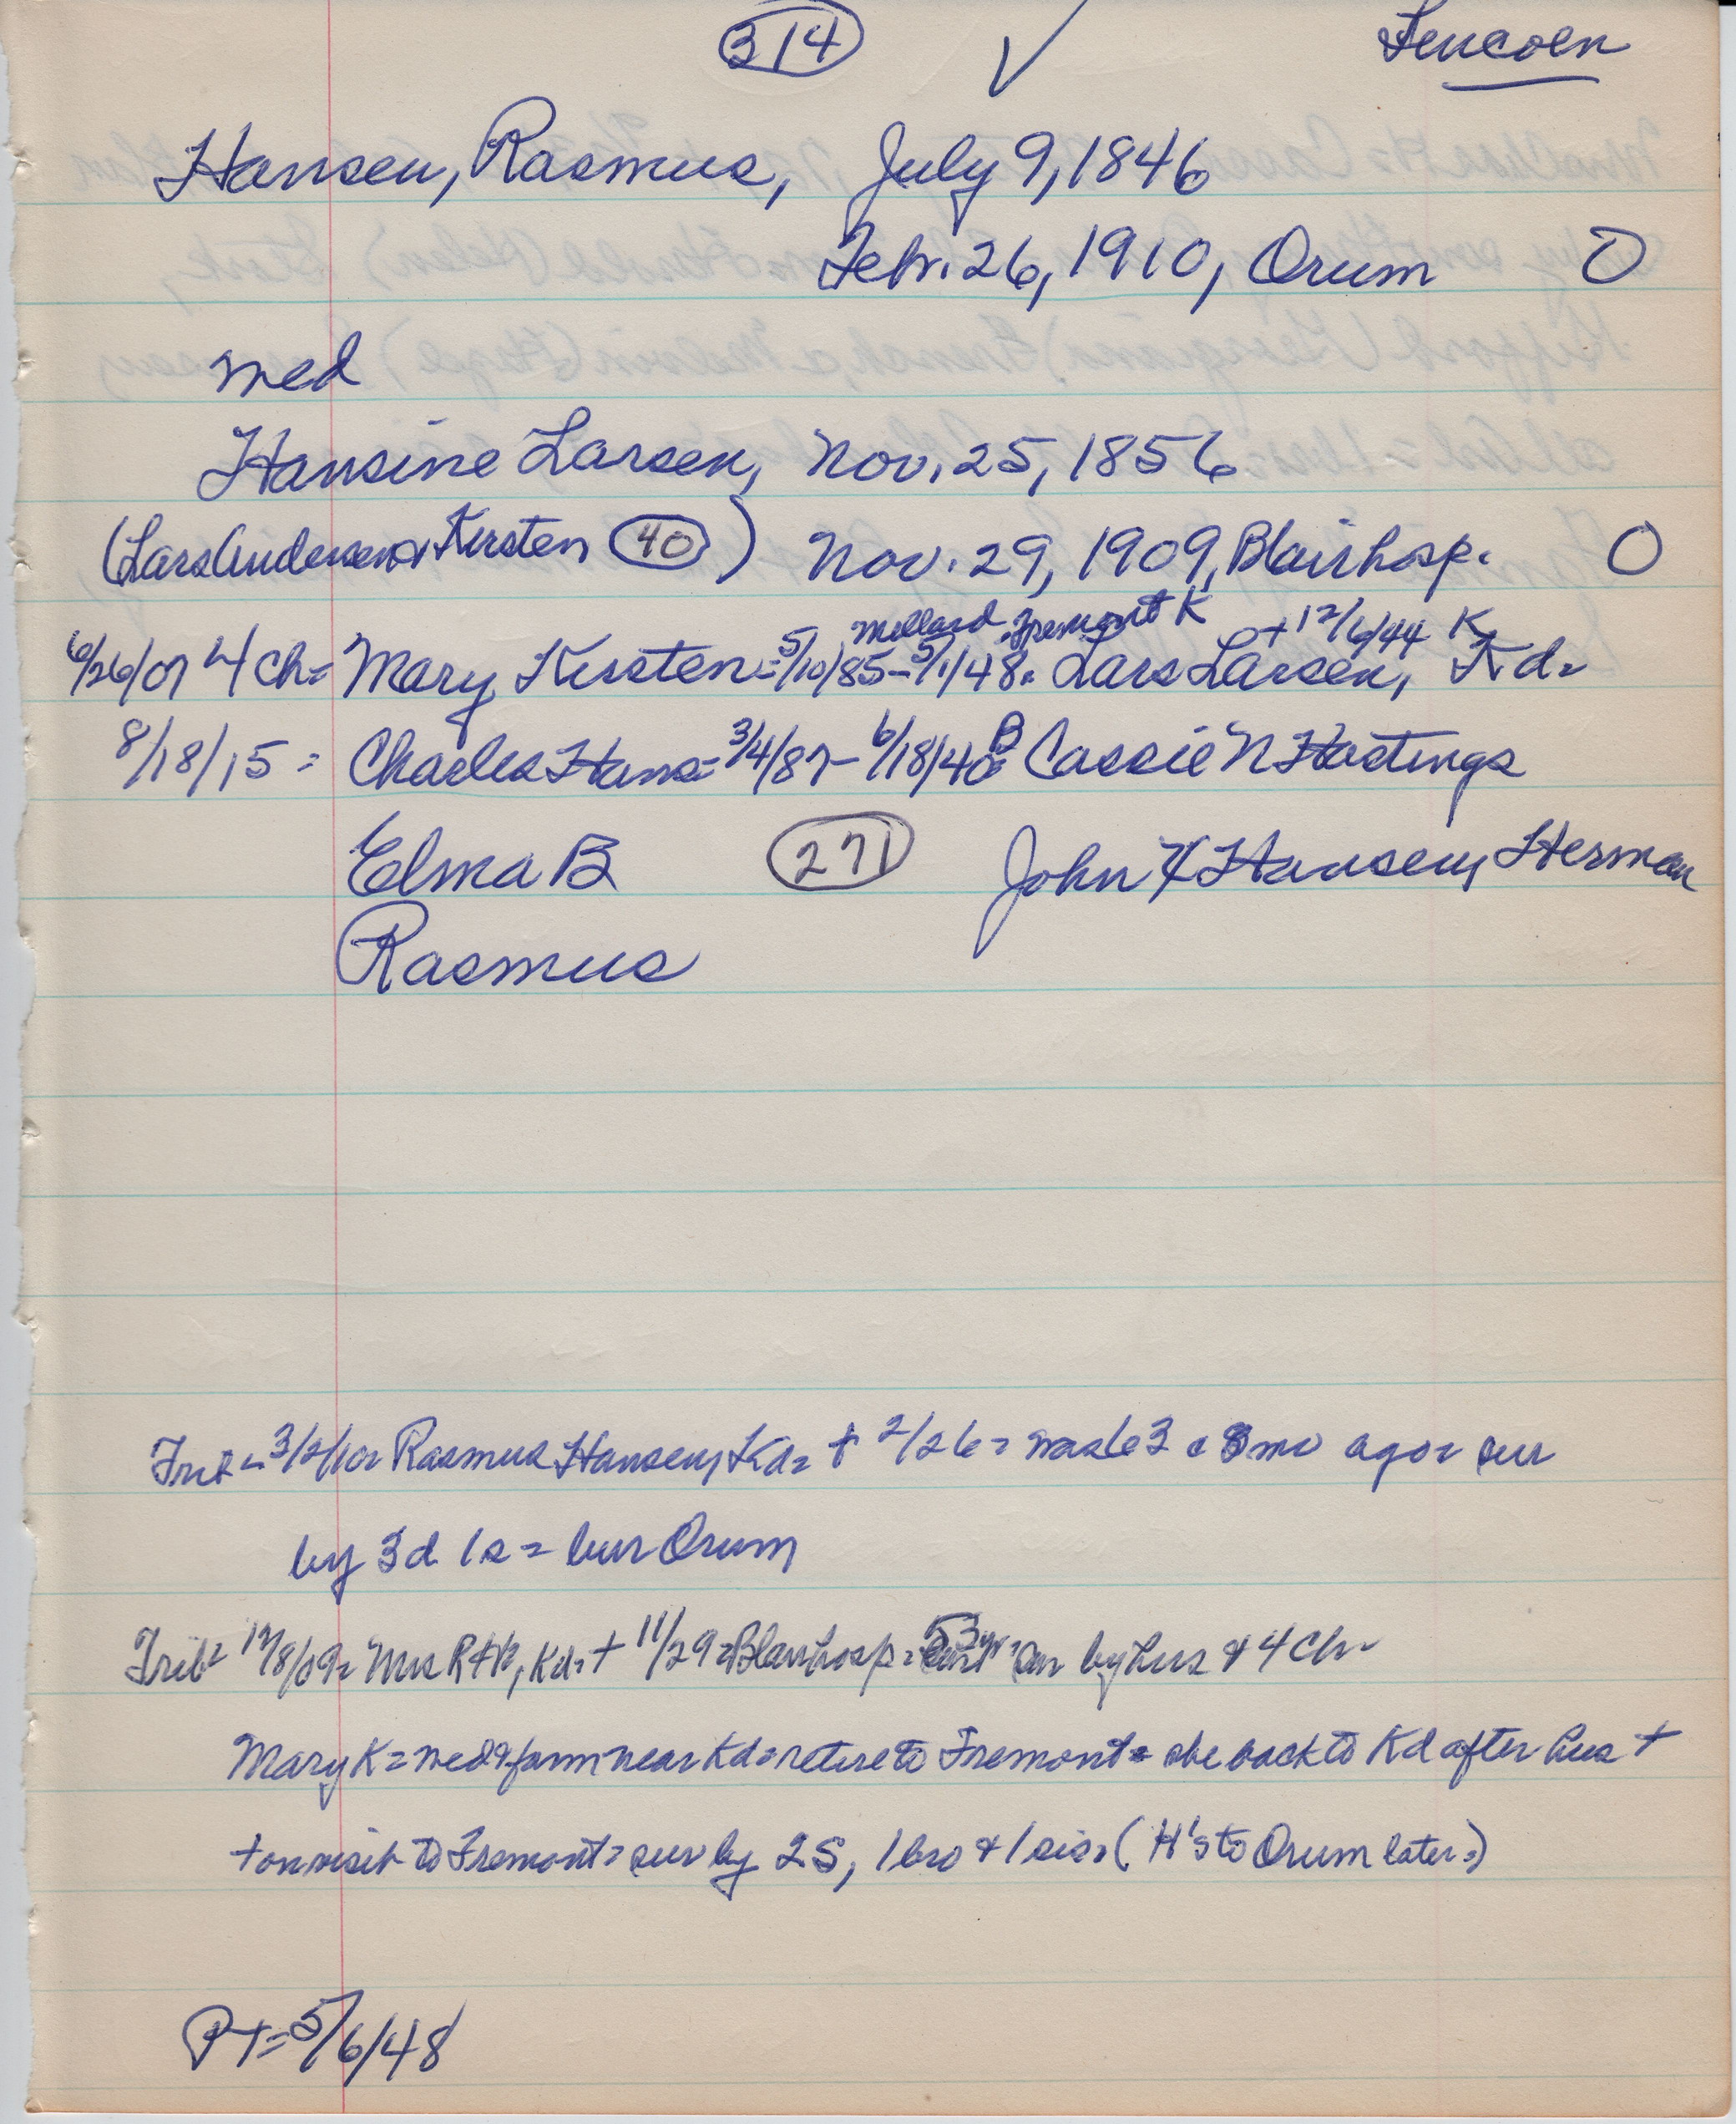 314 ✓ Lincoln
Hansen, Rasmus, July 9, 1846
Febr. 26, 1910, Orum O
med
Hansine Larsen, Nov. 25, 1856
(Lars Andersen & Kirsten 40) Nov. 29, 1909, Blair hosp. O
Millard Fremont K + 12/6/44 K
6/26/07 4 ch= Mary Kirsten = 5/10/85 - 5/1/48. Lars Larsen, Kd=
8/18/15 = Charles Hans = 3/4/87 - 6/18/40 B Cassie N Hastings
Elma B 271 John H Hansen, Herman
Rasmus
Trib = 3/2/10 = Rasmus Hansen, Kd = + 2/26 = was 63 c 8 mo ago = sur
by 3d 1s = bur Orum
Trib = 12/8/09 = Mrs R H, Kd = + 11/29 = Blair hosp = 53 yr = sur by hus & 4 Ch =
Mary K = med & farm near Kd = retire to Fremont = she back to Kd after hus +
+ on visit to Fremont = sur by 2S, 1 bro & 1 sis = (H's to Orum later =)
PT = 5/6/48